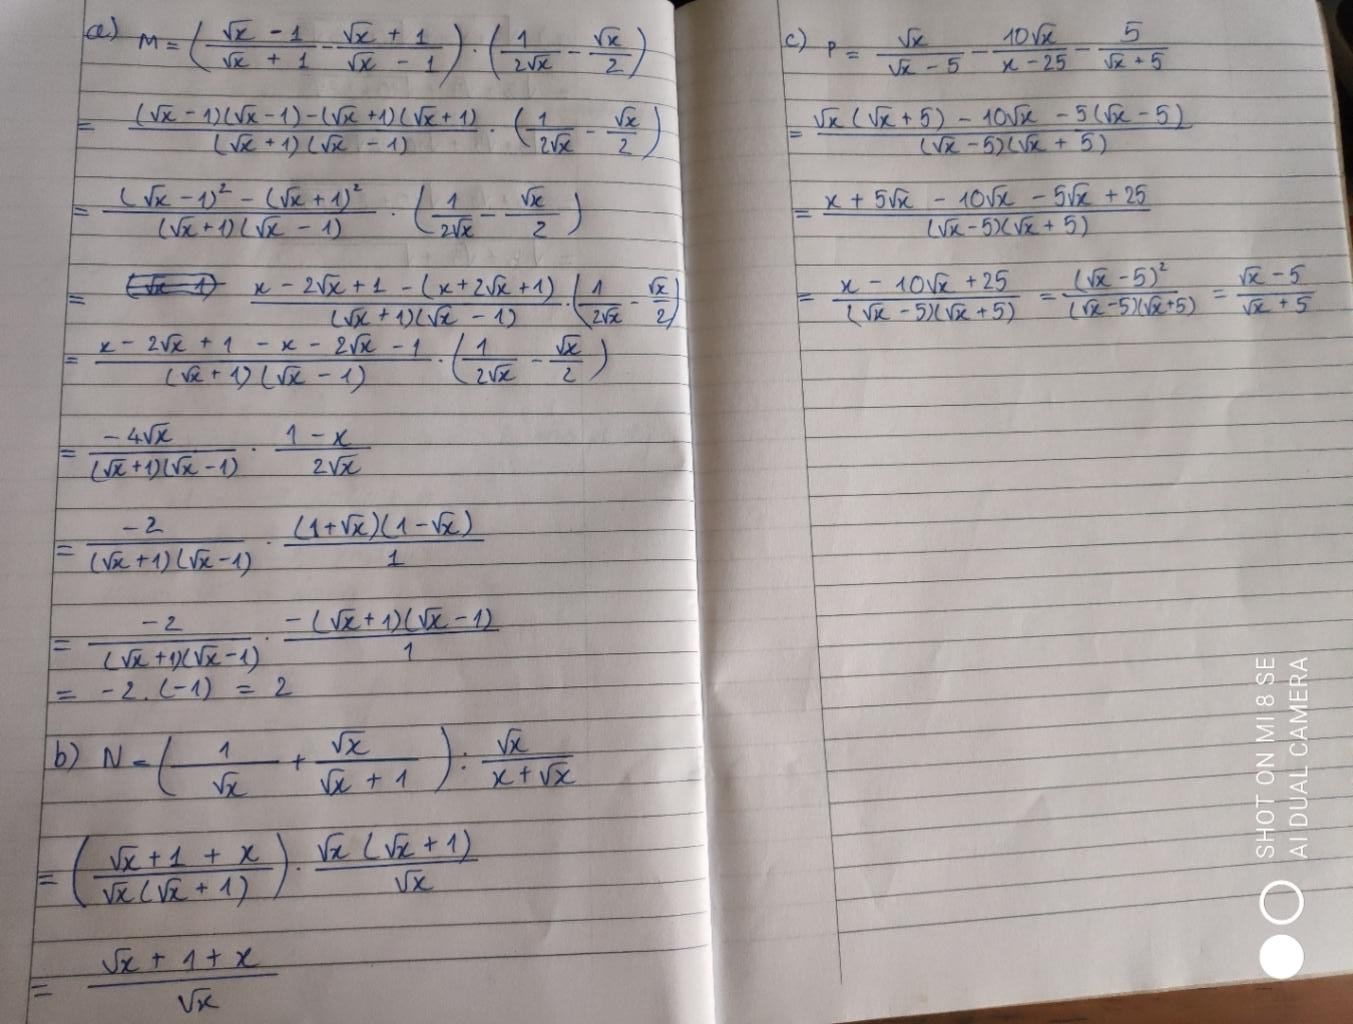 a) M = ( (√x - 1)/(√x + 1) - (√x + 1)/(√x - 1) ) . ( 1/(2√x) - √x/2 )
= ((√x - 1)(√x - 1) - (√x + 1)(√x + 1))/((√x + 1)(√x - 1)) . ( 1/(2√x) - √x/2 )
= ((√x - 1)² - (√x + 1)²)/((√x + 1)(√x - 1)) . ( 1/(2√x) - √x/2 )
= (x - 2√x + 1 - (x + 2√x + 1))/((√x + 1)(√x - 1)) . ( 1/(2√x) - √x/2 )
= (x - 2√x + 1 - x - 2√x - 1)/((√x + 1)(√x - 1)) . ( 1/(2√x) - √x/2 )
= (-4√x)/((√x + 1)(√x - 1)) . (1 - x)/(2√x)
= (-2)/((√x + 1)(√x - 1)) . ((1 + √x)(1 - √x))/1
= (-2)/((√x + 1)(√x - 1)) . (-(√x + 1)(√x - 1))/1
= -2 . (-1) = 2
b) N = ( 1/√x + √x/(√x + 1) ) : √x/(x + √x)
= ( (√x + 1 + x)/(√x(√x + 1)) ) . (√x(√x + 1))/√x
= (√x + 1 + x)/√x
c) P = √x/(√x - 5) - 10√x/(x - 25) - 5/(√x + 5)
= (√x(√x + 5) - 10√x - 5(√x - 5))/((√x - 5)(√x + 5))
= (x + 5√x - 10√x - 5√x + 25)/((√x - 5)(√x + 5))
= (x - 10√x + 25)/((√x - 5)(√x + 5)) = (√x - 5)²/((√x - 5)(√x + 5)) = (√x - 5)/(√x + 5)
SHOT ON MI 8 SE
AI DUAL CAMERA